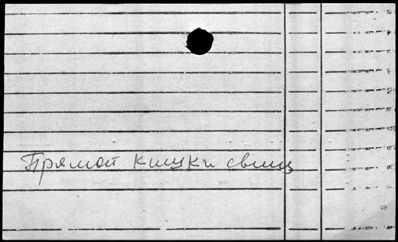 Прямой кишки свищ